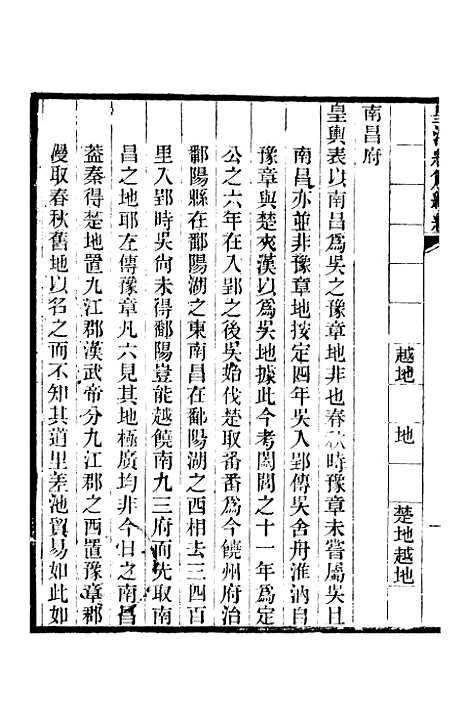 皇清經解續編
越地
地
楚地越地
南昌府
皇輿表以南昌爲吳之豫章地非也春秋時豫章未嘗屬吳且
南昌亦並非豫章地按定四年吳入郢傳吳舍舟淮汭自
豫章與楚夾漢以爲吳地據此今考闔閭之十一年爲定
公之六年在入郢之後吳始伐楚取番番爲今饒州府治
鄱陽縣在鄱陽湖之東南昌在鄱陽湖之西相去三四百
里入郢時吳尙未得鄱陽豈能越饒南九三府而先取南
昌之地耶左傳豫章凡六見其地極廣均非今日之南昌
蓋秦得楚地置九江郡漢武帝分九江郡之西置豫章郡
漫取春秋舊地以名之而不知其道里差池貿易如此如